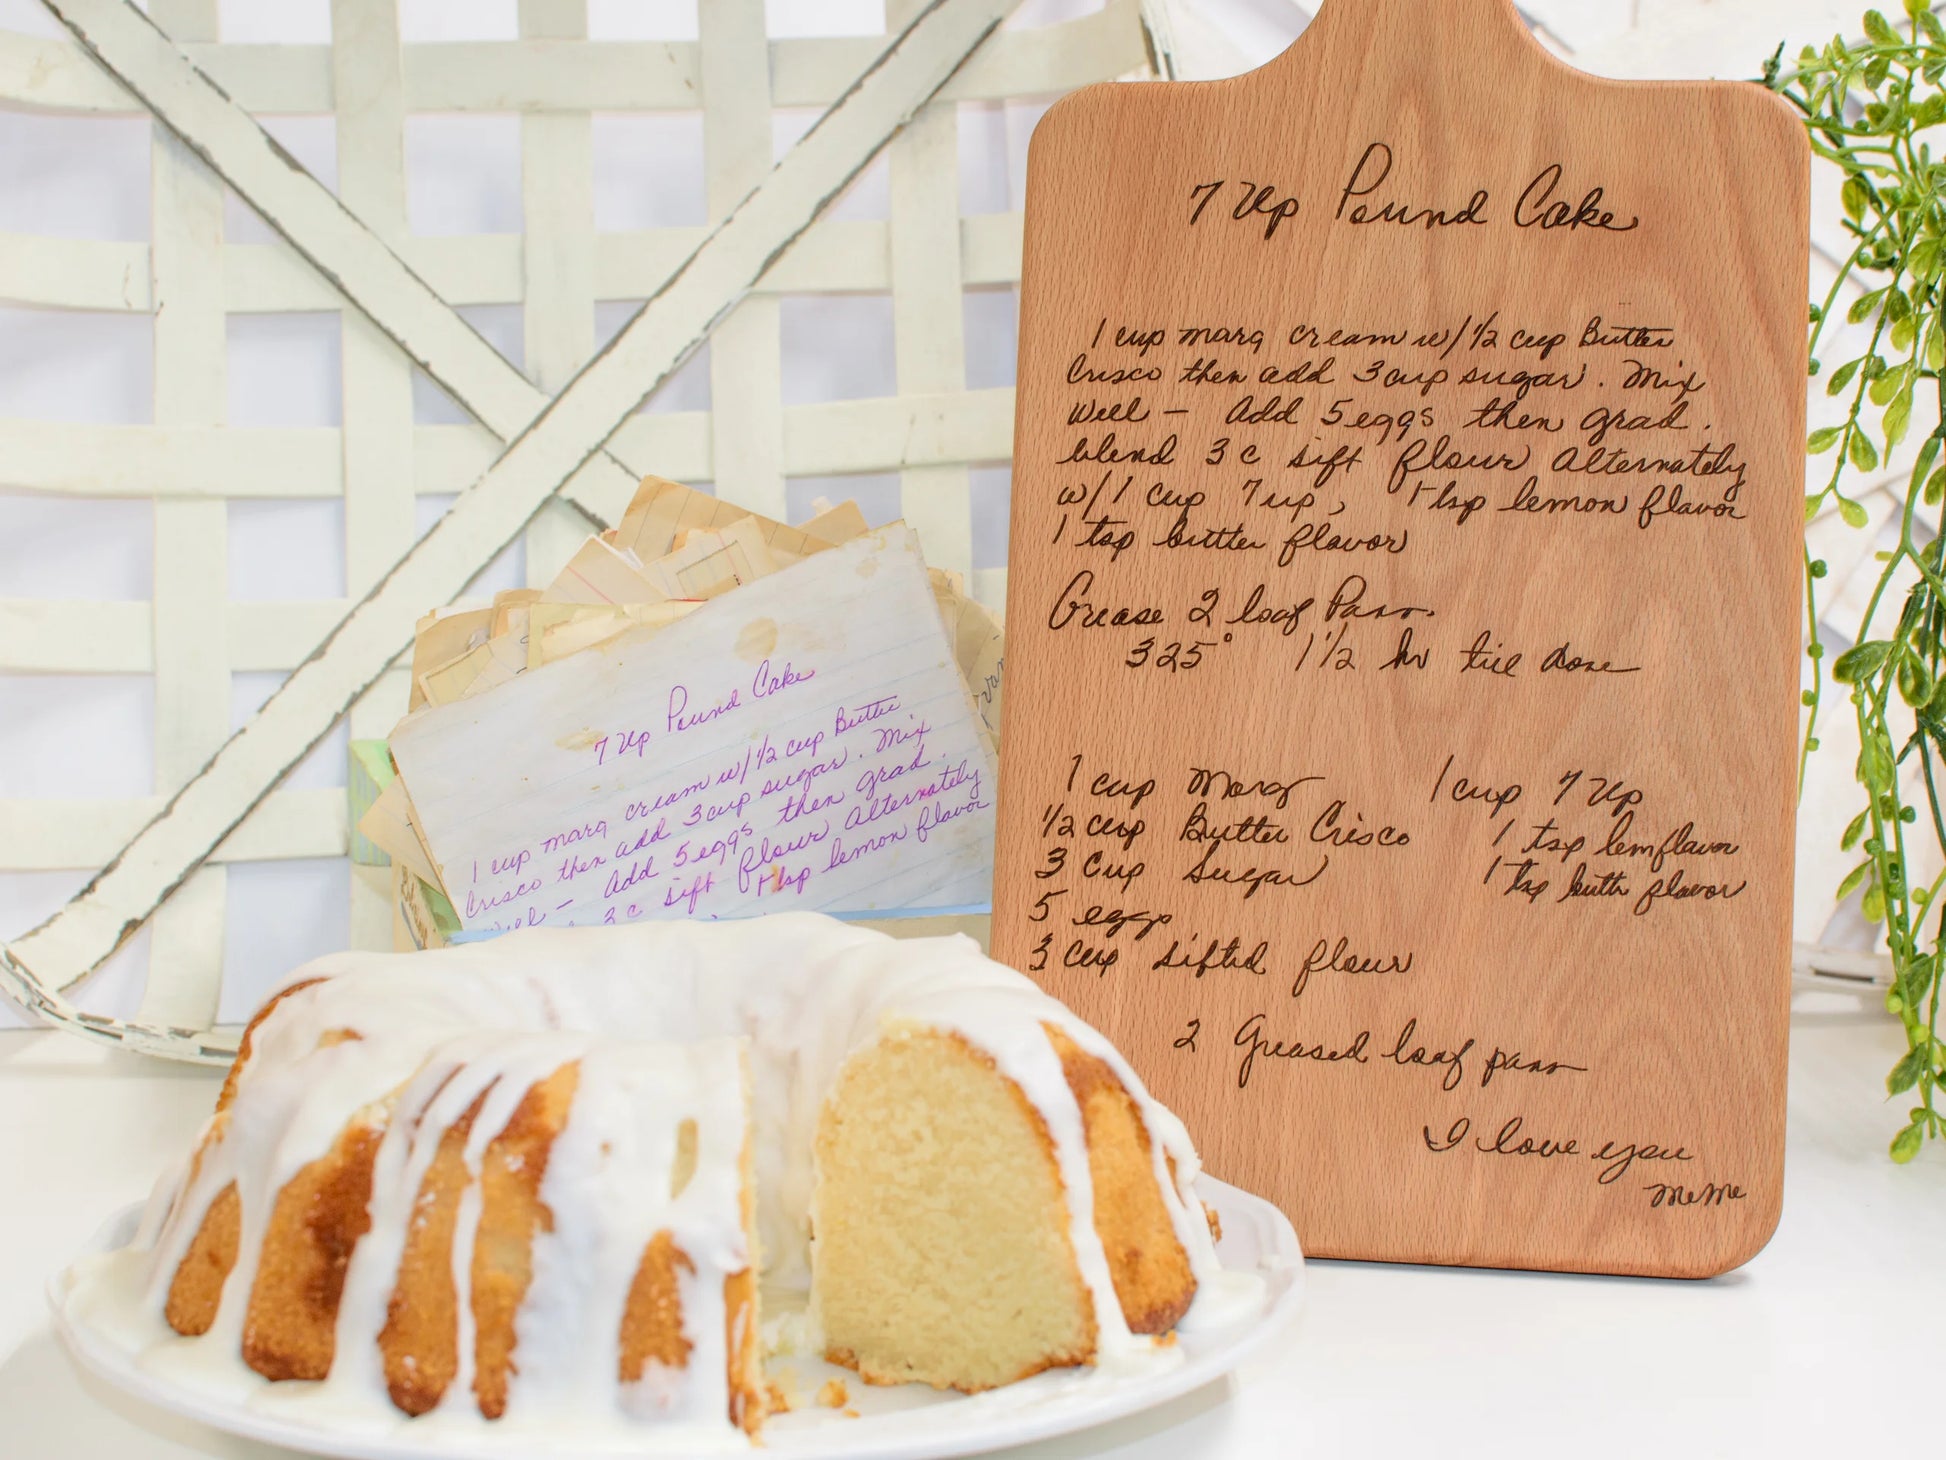 7 Up Pound Cake
1 cup marg cream w/ 1/2 cup Butter
Crisco then add 3 cup sugar. Mix
well - add 5 eggs then grad.
blend 3 c sift flour alternately
w/ 1 cup 7 up, 1 tsp lemon flavor
1 tsp butter flavor
Grease 2 loaf Pans.
325° 1 1/2 hr till done
1 cup Marg
1/2 cup Butter Crisco
3 Cup Sugar
5 eggs
3 cup sifted flour
1 cup 7 Up
1 tsp lem flavor
1 tsp butter flavor
2 Greased loaf pans
I love you
MeMe
7 Up Pound Cake
1 cup marg cream w/ 1/2 cup Butter
Crisco then add 3 cup sugar. Mix
well - add 5 eggs then grad.
3 c sift flour alternately
1 tsp lemon flavor